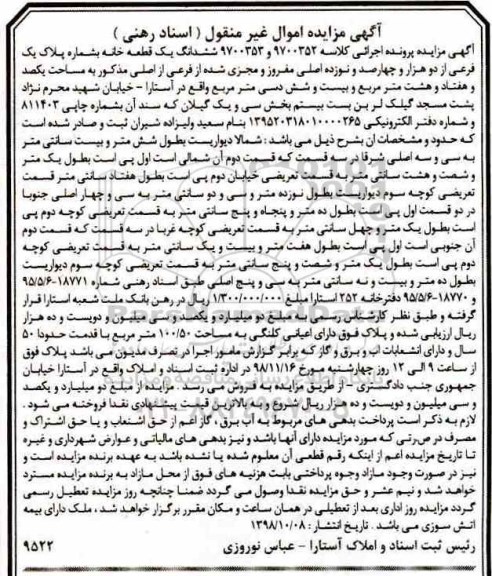 آگهی مزایده اموال غیر منقول ( اسناد رهنی )
آگهی مزایده پرونده اجرائی کلاسه ۹۷۰۰۳۵۲ و ۹۷۰۰۳۵۳ ششدانگ یک قطعه خانه بشماره پلاک یک
فرعی از دو هزار و چهارصد و نوزده اصلی مفروز و مجزی شده از فرعی از اصلی مذکور به مساحت یکصد
و هفتاد و هشت متر مربع و بیست و شش دسی متر مربع واقع در آستارا – خیابان شهید محرم نژاد
پشت مسجد گیلک لر بن بست بیستم بخش سی و یک گیلان که سند آن بشماره چاپی ۸۱۱۴۰۳
و شماره دفتر الکترونیکی ۱۳۹۵۲۰۳۱۸۰۱۰۰۰۰۲۶۵ بنام سعید ولیزاده شیران ثبت و صادر شده است
که حدود و مشخصات آن بشرح ذیل می باشد : شمالا دیواریست بطول شش متر و بیست سانتی متر
به سی و سه اصلی شرقا در سه قسمت که قسمت دوم آن شمالی است اول پی است بطول یک متر
و شصت و هشت سانتی متر به قسمت تعریضی خیابان دوم پی است بطول هفتاد سانتی متر قسمت
تعریضی کوچه سوم دیواریست بطول نوزده متر و سی و دو سانتی متر به سی و چهار اصلی جنوبا
در دو قسمت اول پی است بطول ده متر و پنجاه و پنج سانتی متر به قسمت تعریضی کوچه دوم پی
است بطول یک متر و چهل سانتی متر به قسمت تعریضی کوچه غربا در سه قسمت که قسمت دوم
آن جنوبی است اول پی است بطول هفت متر و بیست و یک سانتی متر به قسمت تعریضی کوچه
دوم پی است بطول یک متر و شصت و پنج سانتی متر به قسمت تعریضی کوچه سوم دیواریست
بطول ده متر و بیست و نه سانتی متر به سی و پنج اصلی طبق اسناد رهنی شماره ۱۸۷۷۱-۹۵/۵/۶
و ۱۸۷۷۰-۹۵/۵/۶ دفترخانه ۲۵۲ آستارا مبلغ ۱/۳۰۰/۰۰۰/۰۰۰ ریال در رهن بانک ملت شعبه آستارا قرار
گرفته و طبق نظر کارشناس رسمی به مبلغ دو میلیارد و یکصد و سی میلیون و دویست و ده هزار
ریال ارزیابی شده و پلاک فوق دارای اعیانی کلنگی به مساحت ۱۰۰/۵۰ متر مربع با قدمت حدودا ۵۰
سال و دارای انشعابات اب و برق و گاز که برابر گزارش مامور اجرا در تصرف مدیون می باشد پلاک فوق
از ساعت ۹ الی ۱۲ روز چهارشنبه مورخ ۹۸/۱۱/۱۶ در اداره ثبت اسناد و املاک واقع در آستارا خیابان
جمهوری جنب دادگستری – از طریق مزایده به فروش می رسد . مزایده از مبلغ دو میلیارد و یکصد
و سی میلیون و دویست و ده هزار ریال شروع و به بالاترین قیمت پیشنهادی نقدا فروخته می شود .
لازم به ذکر است پرداخت بدهی های مربوط به آب برق ، گاز اعم از حق انشعاب و یا حق اشتراک و
مصرف در صرتی که مورد مزایده دارای آنها باشد و نیز بدهی های مالیاتی و عوارض شهرداری و غیره
تا تاریخ مزایده اعم از اینکه رقم قطعی آن معلوم شده یا نشده باشد به عهده برنده مزایده است و
نیز در صورت وجود مازاد وجوه پرداختی بابت هزینه های فوق از محل مازاد به برنده مزایده مسترد
خواهد شد و نیم عشر و حق مزایده نقدا وصول می گردد ضمنا چنانچه روز مزایده تعطیل رسمی
گردد مزایده روز اداری بعد از تعطیلی در همان ساعت و مکان مقرر برگزار خواهد شد ، ملک دارای بیمه
آتش سوزی می باشد . تاریخ انتشار : ۱۳۹۸/۱۰/۰۸
رئیس ثبت اسناد و املاک آستارا – عباس نوروزی ۹۵۲۲